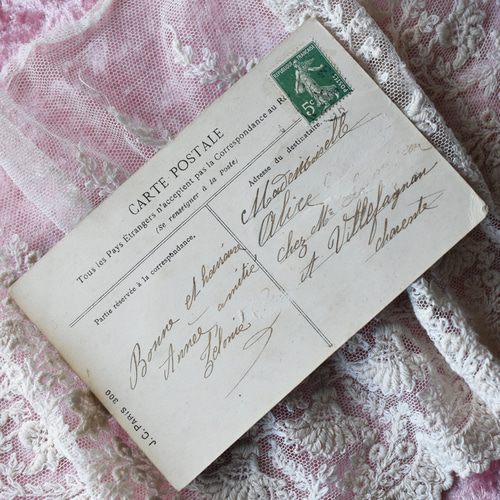 CARTE POSTALE
Tous les Pays Étrangers n'acceptent pas la Correspondance au
(Se renseigner à la Poste)
Partie réservée à la correspondance.
Adresse du destinataire.
REPUBLIQUE FRANÇAISE
POSTES
5c
Bonne et heureuse
Année amitié
Mademoiselle
Alice
chez Mr
et Villefagnan
charente
J.C. PARIS 300